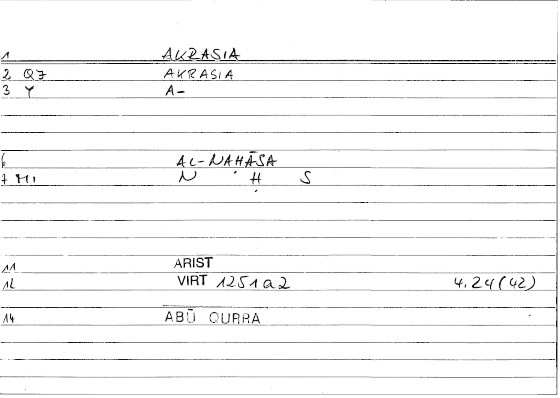 1 AKRASIA
2 Q7 AKRASIA
3 Y A-
6 AL-NAHĀSA
7 M1 N Ḥ S
11 ARIST
12 VIRT 1251a2 4.24(42)
14 ABŪ QURRA